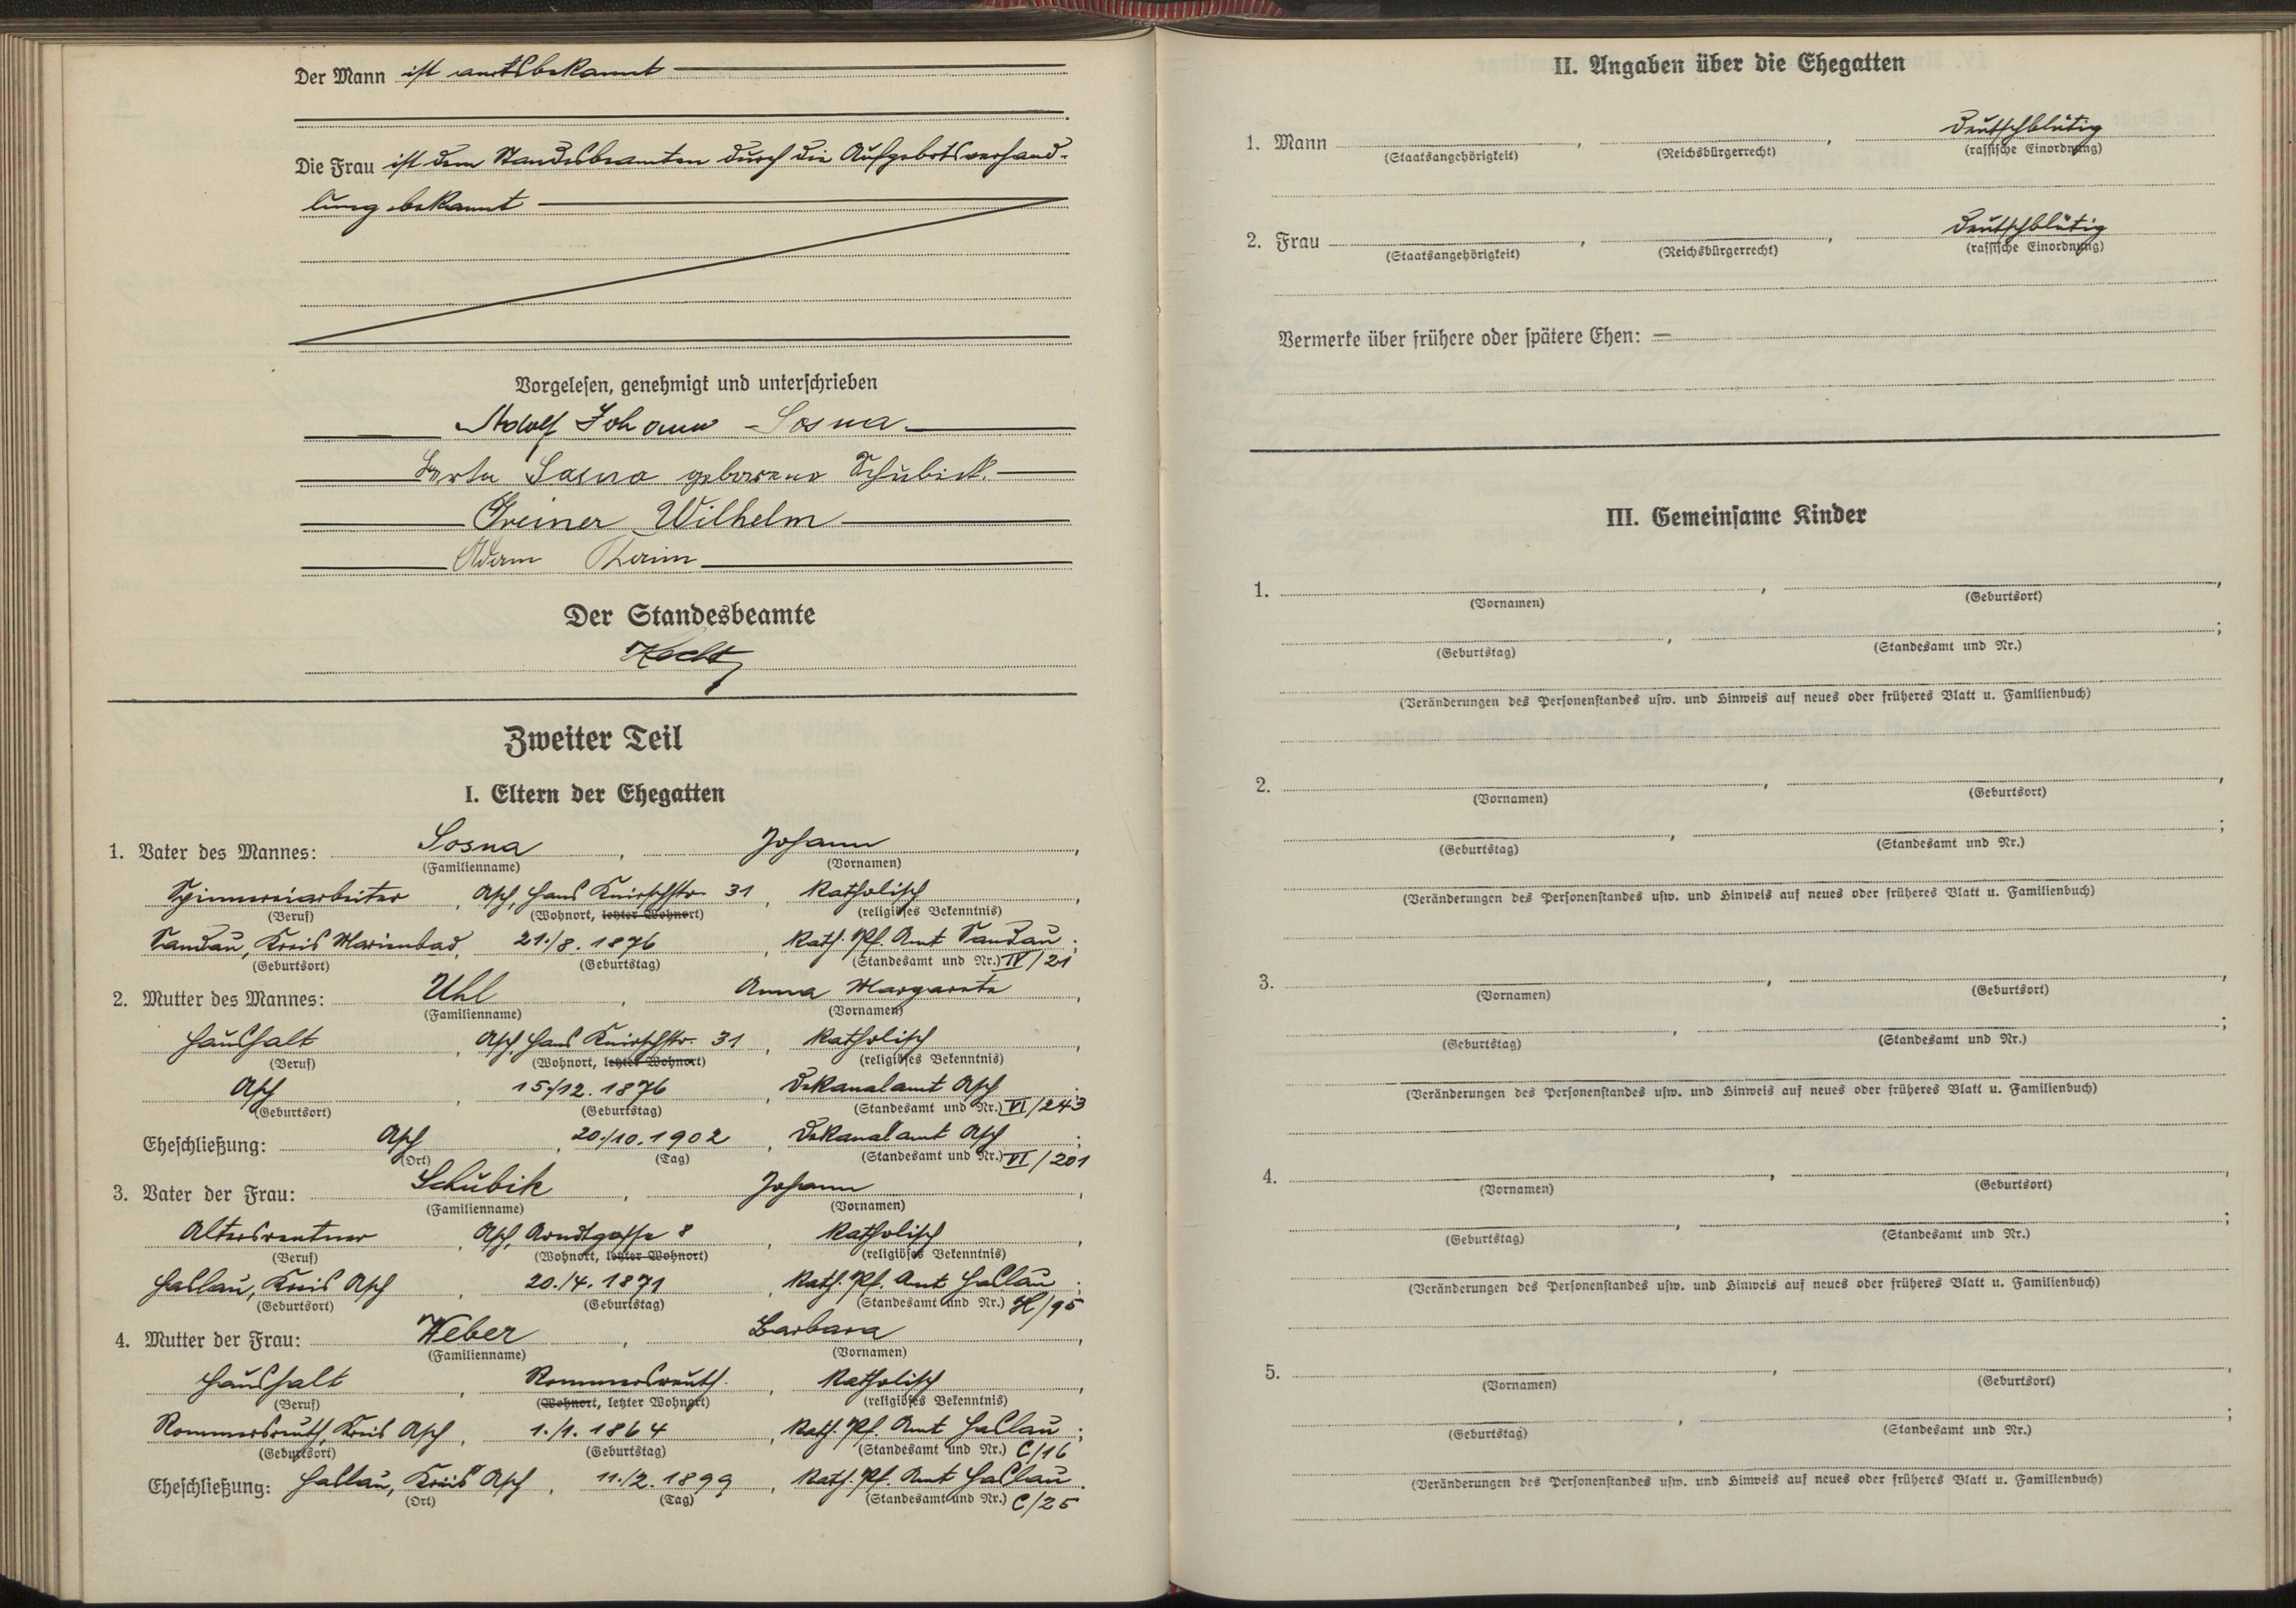 Der Mann ist amtsbekannt
Die Frau ist dem Standesbeamten durch die Aufgebotsverhand-
lung bekannt
Vorgelesen, genehmigt und unterschrieben
Adolf Johann Sosna
Sosna geborene Schubik.
Greiner Wilhelm
Adam
Der Standesbeamte
Zweiter Teil
I. Eltern der Ehegatten
1. Vater des Mannes: Sosna, Johann,
(Familienname) (Vornamen)
Spinnereiarbeiter, Asch, Hans Knirschstr. 31, katholisch,
(Beruf) (Wohnort, letzter Wohnort) (religiöses Bekenntnis)
Sandau, Kreis Marienbad, 21./8. 1876, Kath. Pf. Amt Sandau;
(Geburtsort) (Geburtstag) (Standesamt und Nr.) IV/21
2. Mutter des Mannes: Uhl, Anna Margareta,
(Familienname) (Vornamen)
Haushalt, Asch, Hans Knirschstr. 31, katholisch,
(Beruf) (Wohnort, letzter Wohnort) (religiöses Bekenntnis)
Asch, 15./12. 1876, Dekanalamt Asch;
(Geburtsort) (Geburtstag) (Standesamt und Nr.) VI/243
Eheschließung: Asch, 20./10. 1902, Dekanalamt Asch;
(Ort) (Tag) (Standesamt und Nr.) VI/201
3. Vater der Frau: Schubik, Johann,
(Familienname) (Vornamen)
Altersrentner, Asch, Arndtgasse 8, katholisch,
(Beruf) (Wohnort, letzter Wohnort) (religiöses Bekenntnis)
Haslau, Kreis Asch, 20./4. 1871, Kath. Pf. Amt Haslau;
(Geburtsort) (Geburtstag) (Standesamt und Nr.) H/95
4. Mutter der Frau: Weber, Barbara,
(Familienname) (Vornamen)
Haushalt, Rommersreuth, katholisch,
(Beruf) (Wohnort, letzter Wohnort) (religiöses Bekenntnis)
Rommersreuth, Kreis Asch, 1./1. 1864, Kath. Pf. Amt Haslau;
(Geburtsort) (Geburtstag) (Standesamt und Nr.) C/16
Eheschließung: Haslau, Kreis Asch, 11./2. 1899, Kath. Pf. Amt Haslau.
(Ort) (Tag) (Standesamt und Nr.) C/25
II. Angaben über die Ehegatten
1. Mann , , deutschblütig
(Staatsangehörigkeit) (Reichsbürgerrecht) (rassische Einordnung)
2. Frau , , deutschblütig
(Staatsangehörigkeit) (Reichsbürgerrecht) (rassische Einordnung)
Vermerke über frühere oder spätere Ehen: —
III. Gemeinsame Kinder
1. , ,
(Vornamen) (Geburtsort)
, ;
(Geburtstag) (Standesamt und Nr.)
(Veränderungen des Personenstandes usw. und Hinweis auf neues oder früheres Blatt u. Familienbuch)
2. , ,
(Vornamen) (Geburtsort)
, ;
(Geburtstag) (Standesamt und Nr.)
(Veränderungen des Personenstandes usw. und Hinweis auf neues oder früheres Blatt u. Familienbuch)
3. , ,
(Vornamen) (Geburtsort)
, ;
(Geburtstag) (Standesamt und Nr.)
(Veränderungen des Personenstandes usw. und Hinweis auf neues oder früheres Blatt u. Familienbuch)
4. , ,
(Vornamen) (Geburtsort)
, ;
(Geburtstag) (Standesamt und Nr.)
(Veränderungen des Personenstandes usw. und Hinweis auf neues oder früheres Blatt u. Familienbuch)
5. , ,
(Vornamen) (Geburtsort)
, ;
(Geburtstag) (Standesamt und Nr.)
(Veränderungen des Personenstandes usw. und Hinweis auf neues oder früheres Blatt u. Familienbuch)